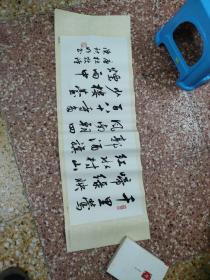 千里鶯
啼綠映
紅水村山
郭酒旗
風南朝四
百八十寺多
少樓臺
煙雨中
唐杜牧詩